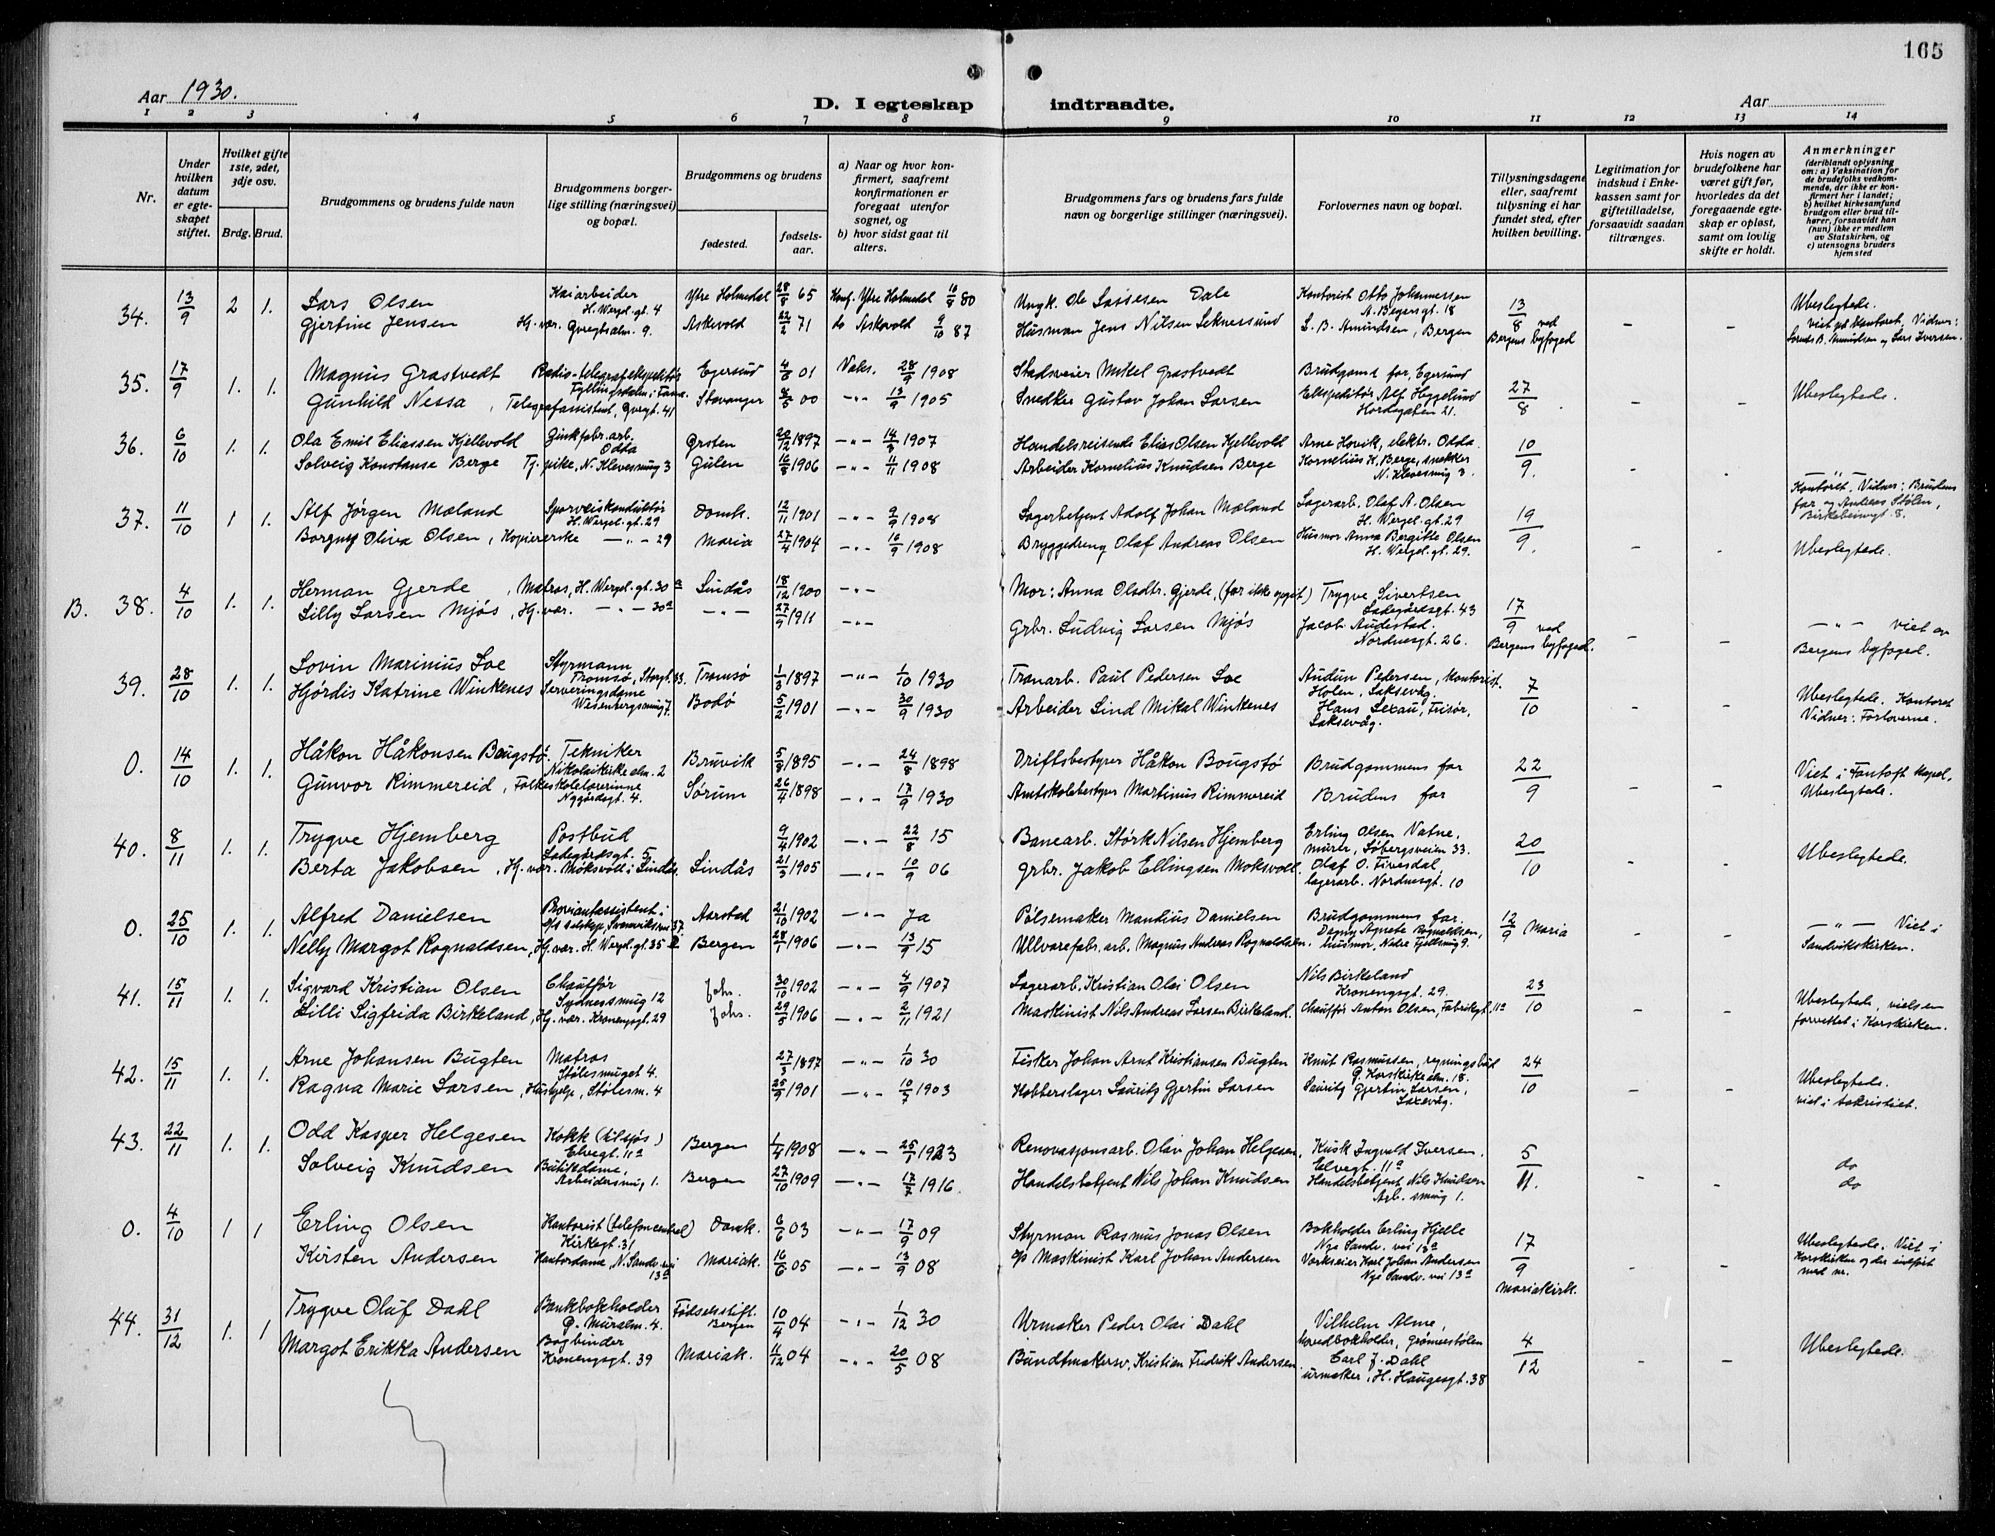 165
Aar 1930.
D. I egteskap indtraadte.
Aar
1 2 3 4 5 6 7 8 9 10 11 12 13 14
Nr.
Under hvilken datum er egteskapet stiftet.
Hvilket gifte 1ste, 2det, 3dje osv.
Brdg. Brud.
Brudgommens og brudens fulde navn
Brudgommens borgerlige stilling (næringsvei) og bopæl.
Brudgommens og brudens
fødested.
fødselsaar.
a) Naar og hvor konfirmert, saafremt konfirmationen er foregaat utenfor sognet, og
b) hvor sidst gaat til alters.
Brudgommens fars og brudens fars fulde navn og borgerlige stillinger (næringsvei).
Forlovernes navn og bopæl.
Tillysningsdagene eller, saafremt tillysning ei har fundet sted, efter hvilken bevilling.
Legitimation for indskud i Enkekassen samt for giftetilladelse, forsaavidt saadan tiltrænges.
Hvis nogen av brudefolkene har været gift før, hvorledes da det foregaaende egteskap er opløst, samt om lovlig skifte er holdt.
Anmerkninger (deriblandt oplysning om: a) Vaksination for de brudefolks vedkommende, der ikke er konfirmert her i landet; b) hvilket kirkesamfund brudgom eller brud tilhører, forsaavidt han (hun) ikke er medlem av Statskirken, og c) utensogns bruders hjemsted
34. 13/9 2 1. Lars Olsen Kaiarbeider H. Wergel. gt. 4 Ytre Holmedal 28/8 65 Konf. Ytre Holmedal 10/9 80 Ungk. Ole Lassesen Dale Kontorist Otto Johannessen A. Beyersgt. 18 13/8 ved Bergens byfoged - - Ubeslegtede.
Gjertine Jensen Hj. vær. Askvold 22/2 71 do Askvold 9/10 87 Husman Jens Nilsen Leknessund L. B. Amundsen, Bergen viet på kontoret. Vidner:
35. 17/9 1. 1. Magnus Grastvedt Egersund 4/6 01 Vaks. 28/9 1908 Mikel Grastvedt Brudgoms far, Egersund 27/8. - - Ubeslegtede.
Gunhild Nessa, Telegrafassistent, 41 Stavanger 8/5 00 -"- 13/9 1905 Snedker Gustav Johan Larsen Ekspeditør Alf Heggelund Hordagaten 21.
36. 6/10 1. 1. Ola Emil Eliassen Kjellevold Zinkfabr. arb. Odda Ørsten 20/12 1897 -"- 14/8 1907 Handelsreisende Elias Olsen Kjellevold Arne Hovik, elektr. Odda 10/9. - -
Solveig Konstanse Berge Tj. pike, N. Klevesmug 3 Gulen 16/8 1906 -"- 11/11 1908 Arbeider Kornelius Knudsen Berge Kornelius K. Berge, snekker N. Klevesmug 3.
37. 11/10 1 1. Alf Jørgen Mæland Sporveiskonduktør H. Wergel. gt. 29 Domk. 12/11 1901 -"- 9/9 1908 Lagerbetjent Adolf Johan Mæland Lagerarb. Olaf A. Olsen H. Wergel. gt. 29 19/9. - - Kontoret, Vidner: Brudens far og Andreas Stølen,
Borgny Oliva Olsen, -"- 29 Maria 27/4 1904 -"- 10/9 1908 Bryggedreng Olaf Andreas Olsen Husmor Anna Bergitte Olsen H. Wergel. gt. 29. Ubeslegtede.
B. 38. 4/10 1. 1. Herman Gjerde, Matros, H. Wergel. gt. 30 a Lindås 18/12 1900 -"- Mor: Anna Olsdtr. Gjerde, (far ikke opgit) Trygve Sivertsen Ladegårdsgt. 43 17/9 ved Bergens byfoged. - - -"- viet av Bergens byfoged.
Lilly Larsen Mjøs, Hj. vær. -"- 30a -"- 27/9 1911 -"- Grbr. Ludvig Larsen Mjøs Jacob Audestad. Nordnesgt. 26.
39. 28/10 1. 1. Lovin Marinius Loe Styrmann Tromsø, Storgt. 33. Tromsø 1/3 1897 -"- 1/10 1930 Tranarb. Paul Pedersen Loe Audun Pedersen, kontorist. Holen, Laksevåg. 7/10 - - Ubeslegtede. Kontoret Vidner: Forloverne.
Hjørdis Katrine Winkenes Serveringsdame Wesenbergsmug 7. Bodø 5/2 1901 -"- 30/9 1930 Arbeider Lind Mikal Winkenes Hans Lexau, Frisør, Laksevåg.
0. 14/10 1. 1. Håkon Håkonsen Bougstø Tekniker Nikolaikirke alm. 2 Bruvik 5/8 1895 -"- 24/8 1898 Driftsbestyrer Håkon Bougstø Brudgommens far 22/9 - - Viet i Fantoft kapel. Ubeslegtede.
Gunvor Rimmereid, Folkeskolelærerinne Nygårdsgt. 4. Sørum 26/4 1898 -"- 17/9 1930 Amtskolebestyrer Martinus Rimmereid Brudens far
40. 8/11 1. 1. Trygve Hjemberg Postbud Ladegårdsgt. 5. 9/4 1902 -"- 22/8 15 Banearb. Størk Nilsen Hjemberg Erling Olsen Vatne, murer, Søbergsveien 33. 20/10 - - Ubeslegtede.
Berta Jakobsen, Hj. vær. Moksvoll i Lindås. Lindås 21/3 1905 -"- 10/9 06 Grbr. Jakob Ellingsen Moksvoll. Olaf O. Tivesdal, lagerarb. Nordnesgt. 10
0. 25/10 1. 1. Alfred Danielsen Proviantassistent i Aarstad 21/10 1902 -"- Ja Pølsemaker Mandius Danielsen Brudgommens far. 12/9 Maria - - -"- Viet i Sandvikskirken.
Nelly Margot Rognaldsen, Hj. vær. H. Wergel. gt. 35 Bergen 28/1 1906 -"- 13/9 15 Ullvarefabr. arb. Magnus Andreas Rognaldsen. Dagny Agnete Rognaldsen, husmor, Nedre Fjellsmug 9.
41. 15/11 1. 1. Sigvard Kristian Olsen Chauffør Sydnessmug 12 Johs. 30/10 1902 -"- 4/9 1907 Lagerarb. Kristian Olai Olsen Nils Birkeland Kronengsgt. 29. 23/10 - - Ubeslegtede, vielsen forrettet i Korskirken.
Lilli Sigfrida Birkeland, Hj. vær. Kronengsgt. 29 Johs. 29/5 1906 -"- 2/11 1921 Maskinist Nils Andreas Larsen Birkeland. Chauffør Anton Olsen, Fabrikgt. 11a
42. 15/11 1. 1. Arne Johansen Bugten Matros Stølesmuget 4. 27/3 1897 -"- 1/10 30 Fisker Johan Arnt Kristiansen Bugten Knut Rasmussen, regningsbud Korskirke alm. 18. 24/10 - - Ubeslegtede. viet i sakristiet.
Ragna Marie Larsen, Hushjelp, Stølesm. 4 25/9 1901 -"- 10/7 1903 Kobberslager Lauritz Gjertin Larsen Lauritz Gjertin Larsen, Laxevåg.
43. 22/11 1. 1. Odd Kasper Helgesen Kokk (tilsjøs) Elvegt. 11a Bergen 1/4 1908 -"- 25/1 1923 Renovasjonsarb. Olav Johan Helgesen, Kusk Ingvald Iversen, Elvegt. 11a 5/11. - - do
Solveig Knudsen Butikkdame, Arbeidersmug 1. Bergen 27/10 1909 -"- 17/7 1916. Handelsbetjent Nils Johan Knudsen Handelsbetjent Nils Knudsen Arb. smug 1. do
0. 4/10 1 1 Erling Olsen Kontorist (telefoncentral) Kirkegt. 31 Domk. 6/6 03 -"- 17/9 09 Styrman Rasmus Jonas Olsen Bokholder Erling Hjelle Nye Sandv. vei 13a 17/9 Mariakirk. - - Ubeslegtede. Viet i Korskirken og der indført med nr.
Kirsten Andersen Kontordame, N. Sandv. vei 13a Mariak. 16/6 05 -"- 13/9 08 Maskinist Karl Johan Andersen Verkseier Karl Johan Andersen Nye Sandv. vei 13a
44. 31/12 1. 1 Trygve Oluf Dahl Bankbokholder Ø. Muralm. 4. Fødselsstift. Bergen 10/4 04 -"- 1/12 30 Urmaker Peder Olai Dahl Vilhelm Alme, 4/12 - - Ubeslegtede.
Margot Erikka Andersen Bogbinder Kronengsgt. 39 Mariak. 11/12 04 -"- 20/5 08 Bundtmakersv. Kristian Fredrik Andersen Carl J. Dahl urmaker, H. Haugesgt. 38